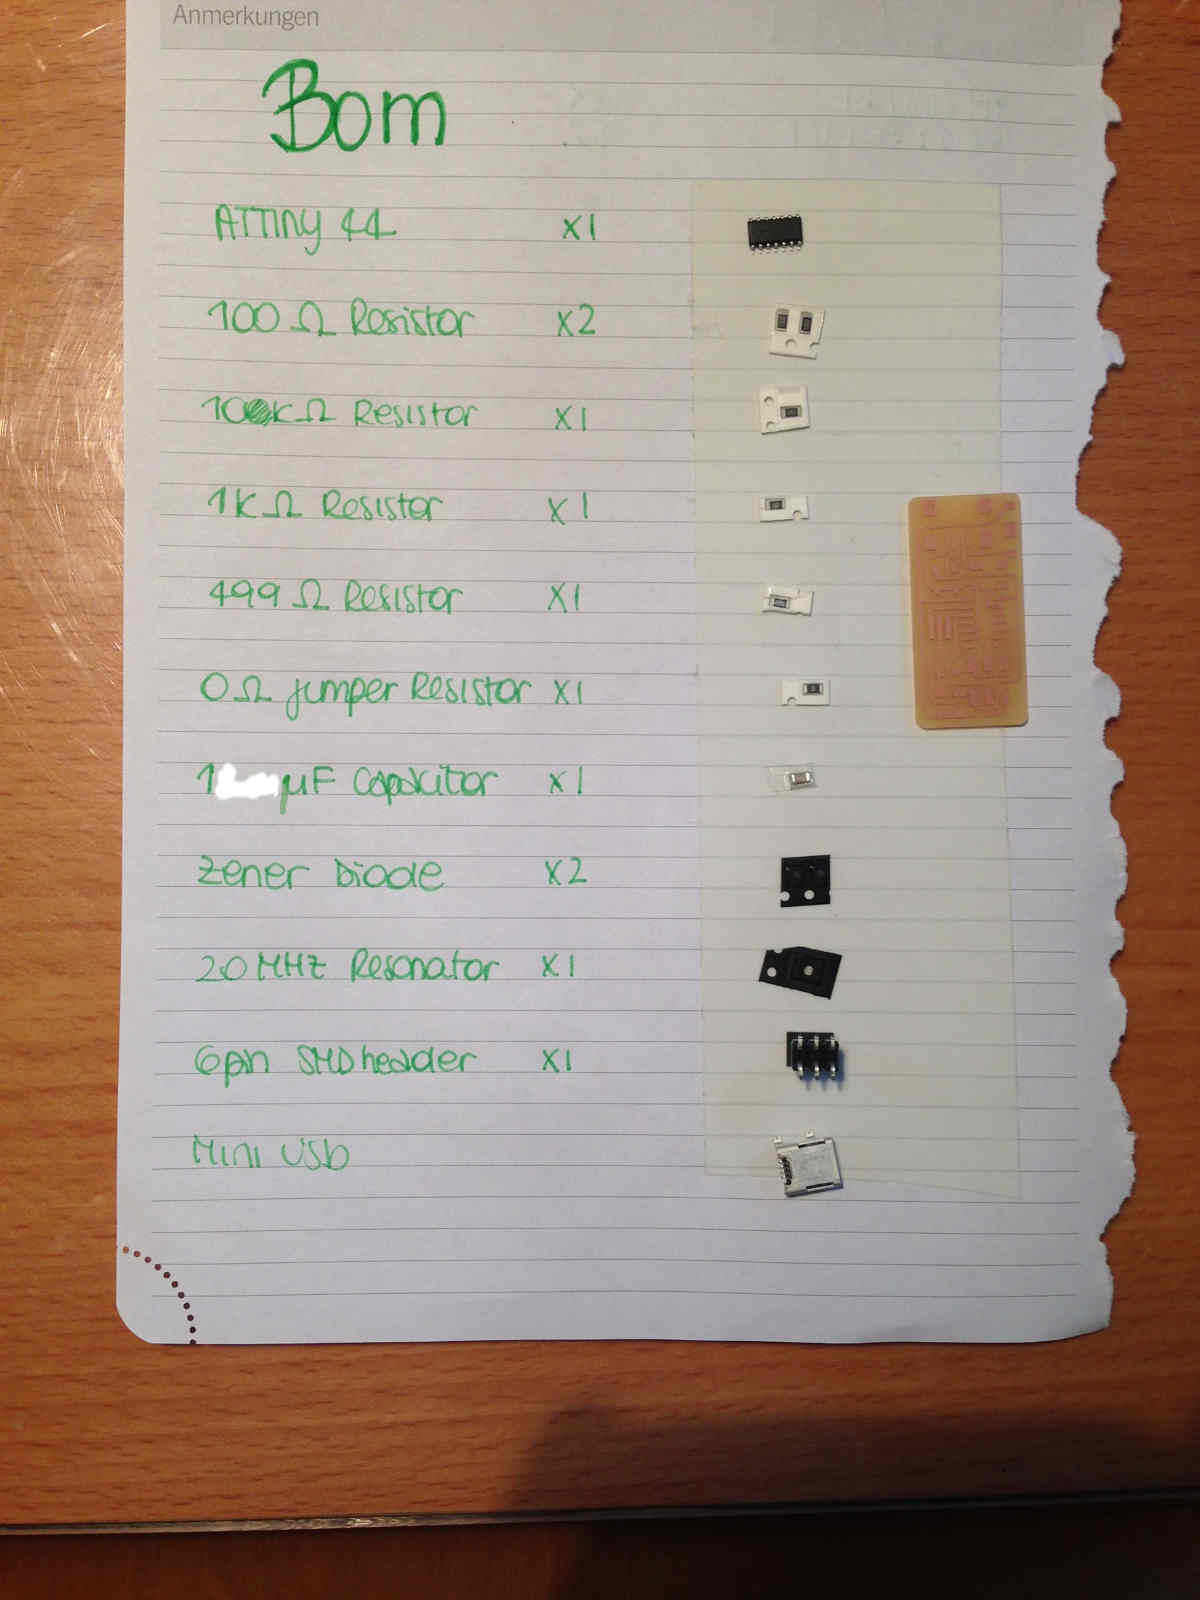 Anmerkungen
Bom
ATTINY 44 x1
100 Ω Resistor x2
10kΩ Resistor x1
1kΩ Resistor x1
499 Ω Resistor x1
0Ω jumper Resistor x1
1 µF Capacitor x1
Zener Diode x2
20 MHz Resonator x1
6pin SMD header x1
Mini USb